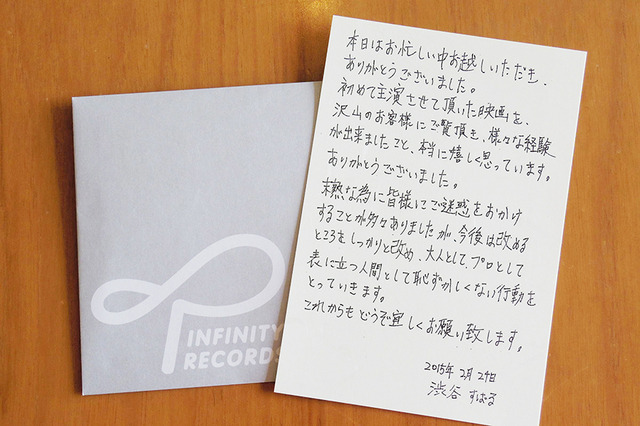 本日はお忙しい中お越しいただき、
ありがとうございました。
初めて主演させて頂いた映画を、
沢山のお客様にご覧頂き、様々な経験
が出来ましたこと、本当に嬉しく思っています。
ありがとうございました。
未熟な為に皆様にご迷惑をおかけ
することが多々ありましたが、今後は改める
ところをしっかりと改め、大人として、プロとして
表に立つ人間として恥ずかしくない行動を
とっていきます。
これからもどうぞ宜しくお願い致します。
2015年 2月 24日
渋谷 すばる
INFINITY
RECORDS